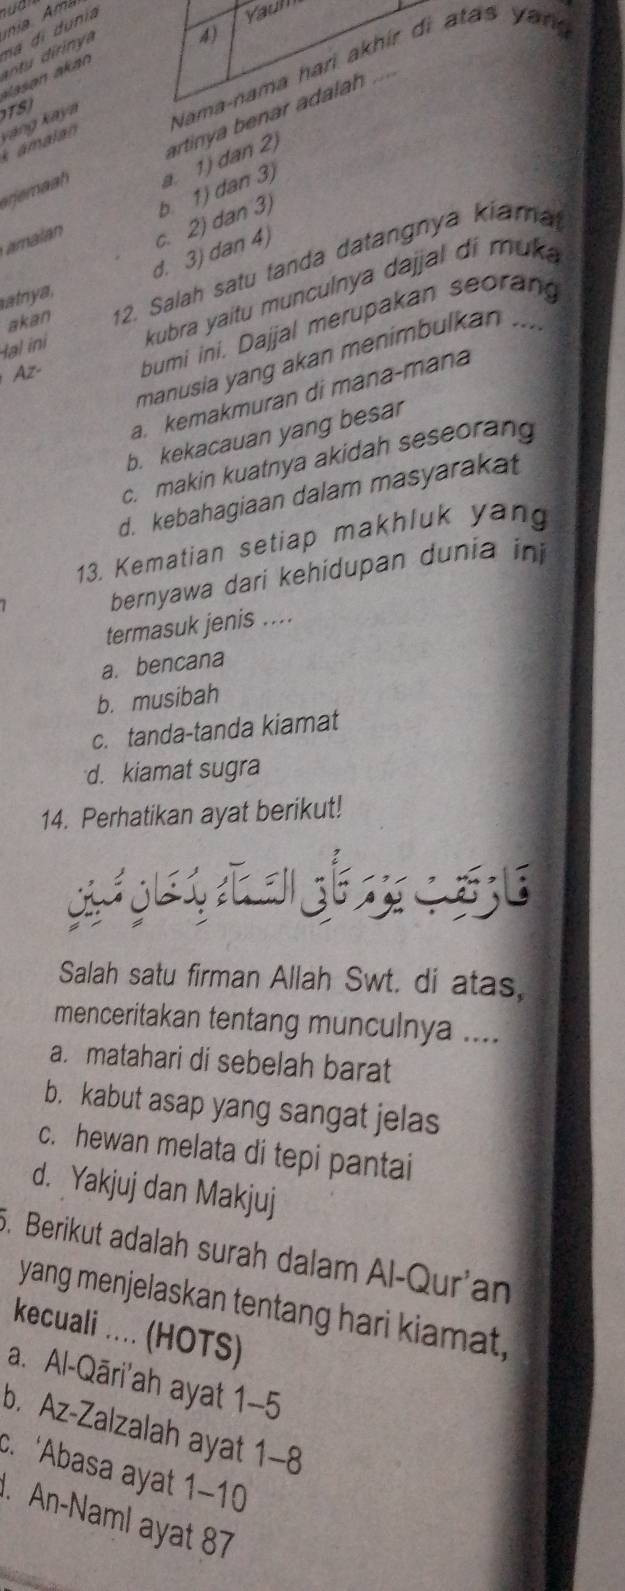 unia. Ama
ma di dunia
antu dirinya
alasan akan
OTS)
yang kaya
k amalan
erjemaah
amalan
akan
Hal ini
Az-
4)
Nama-nama hari akhir di atas yang
artinya benar adalah ....
a. 1) dan 2)
b. 1) dan 3)
c. 2) dan 3)
d. 3) dan 4)
12. Salah satu tanda datangnya kiamat
kubra yaitu munculnya dajjal di muka
bumi ini. Dajjal merupakan seorang
manusia yang akan menimbulkan ....
a. kemakmuran di mana-mana
b. kekacauan yang besar
c. makin kuatnya akidah seseorang
d. kebahagiaan dalam masyarakat
13. Kematian setiap makhluk yang
bernyawa dari kehidupan dunia ini
termasuk jenis ....
a. bencana
b. musibah
c. tanda-tanda kiamat
d. kiamat sugra
14. Perhatikan ayat berikut!
فَارْتَقِبْ يَوْمَ تَأْتِى السَّمَآءُ بِدُخَانٍ مُّبِيْنٍ
Salah satu firman Allah Swt. di atas,
menceritakan tentang munculnya ....
a. matahari di sebelah barat
b. kabut asap yang sangat jelas
c. hewan melata di tepi pantai
d. Yakjuj dan Makjuj
5. Berikut adalah surah dalam Al-Qur'an
yang menjelaskan tentang hari kiamat,
kecuali .... (HOTS)
a. Al-Qāri'ah ayat 1–5
b. Az-Zalzalah ayat 1–8
c. 'Abasa ayat 1–10
d. An-Naml ayat 87